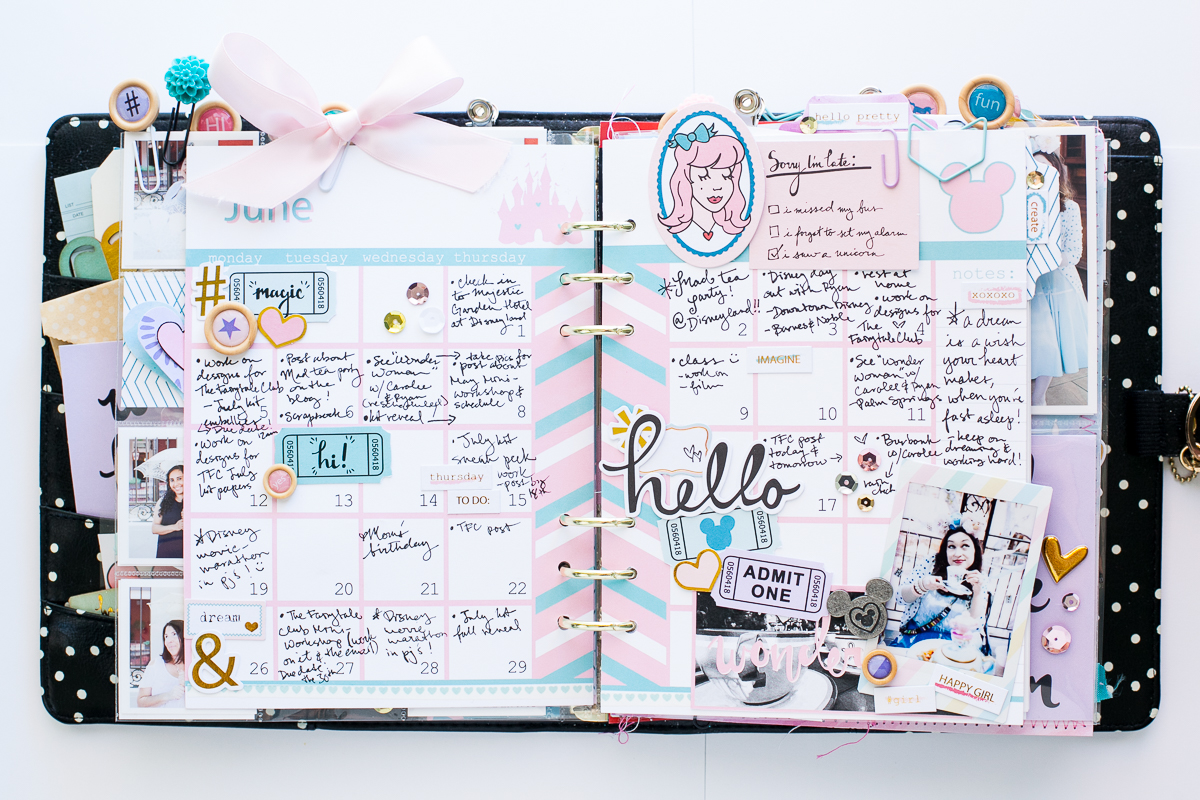 #
HI
fun
hello pretty
June
Sorry I'm late:
i missed my bus
i forgot to set my alarm
i saw a unicorn
create
LIST
DATE
monday tuesday wednesday thursday
#
0560418
magic
0560418
• check in
to Majestic
Garden Hotel
at Disneyland
1
* Mad tea
party!
@ Disneyland!!
2
• Disney day
out with Ryan
- Downtown Disney
- Barnes & Noble
3
• rest at
home
• work on
designs for
The
Fairytale Club
4
notes:
xoxoxo
* a dream
is a wish
your heart
makes,
when you're
fast asleep!
- keep on
dreaming &
working hard!
• Work on
designs for
The Fairytale Club
- July kit
embellies!
Due date:
5
• Post about
Mad tea party
on the
blog!
• Scrapbook
6
• See "Wonder
Woman"
w/ Carolee
& Ryan
• kit reveal!
• take pics for
post about
May Mini-
Workshop &
schedule
8
• class
- work on
- film
9
IMAGINE
10
• See "Wonder
Woman" w/
Carolee & Ryan
- Palm Springs
11
• Work on
designs for
TFC July
kit papers
12
hi!
0560418
13
14
• July kit
sneak peek
work
- post by
thursday
TO DO:
15
hello
• TFC post
today &
tomorrow
17
• Busbank
w/ Carolee
rain
check
* Disney
movie
marathon
in pj's!
19
20
• Mom's
birthday
21
• TFC post
22
0560418
0560418
ADMIT
ONE
0560418
dream
&
26
• The Fairytale
Club Mini-
Workshop (work
on it & the email)
Due date:
the 30th
27
* Disney
movie
marathon
in pj's!
28
• July kit
full reveal
29
wonder
HAPPY GIRL